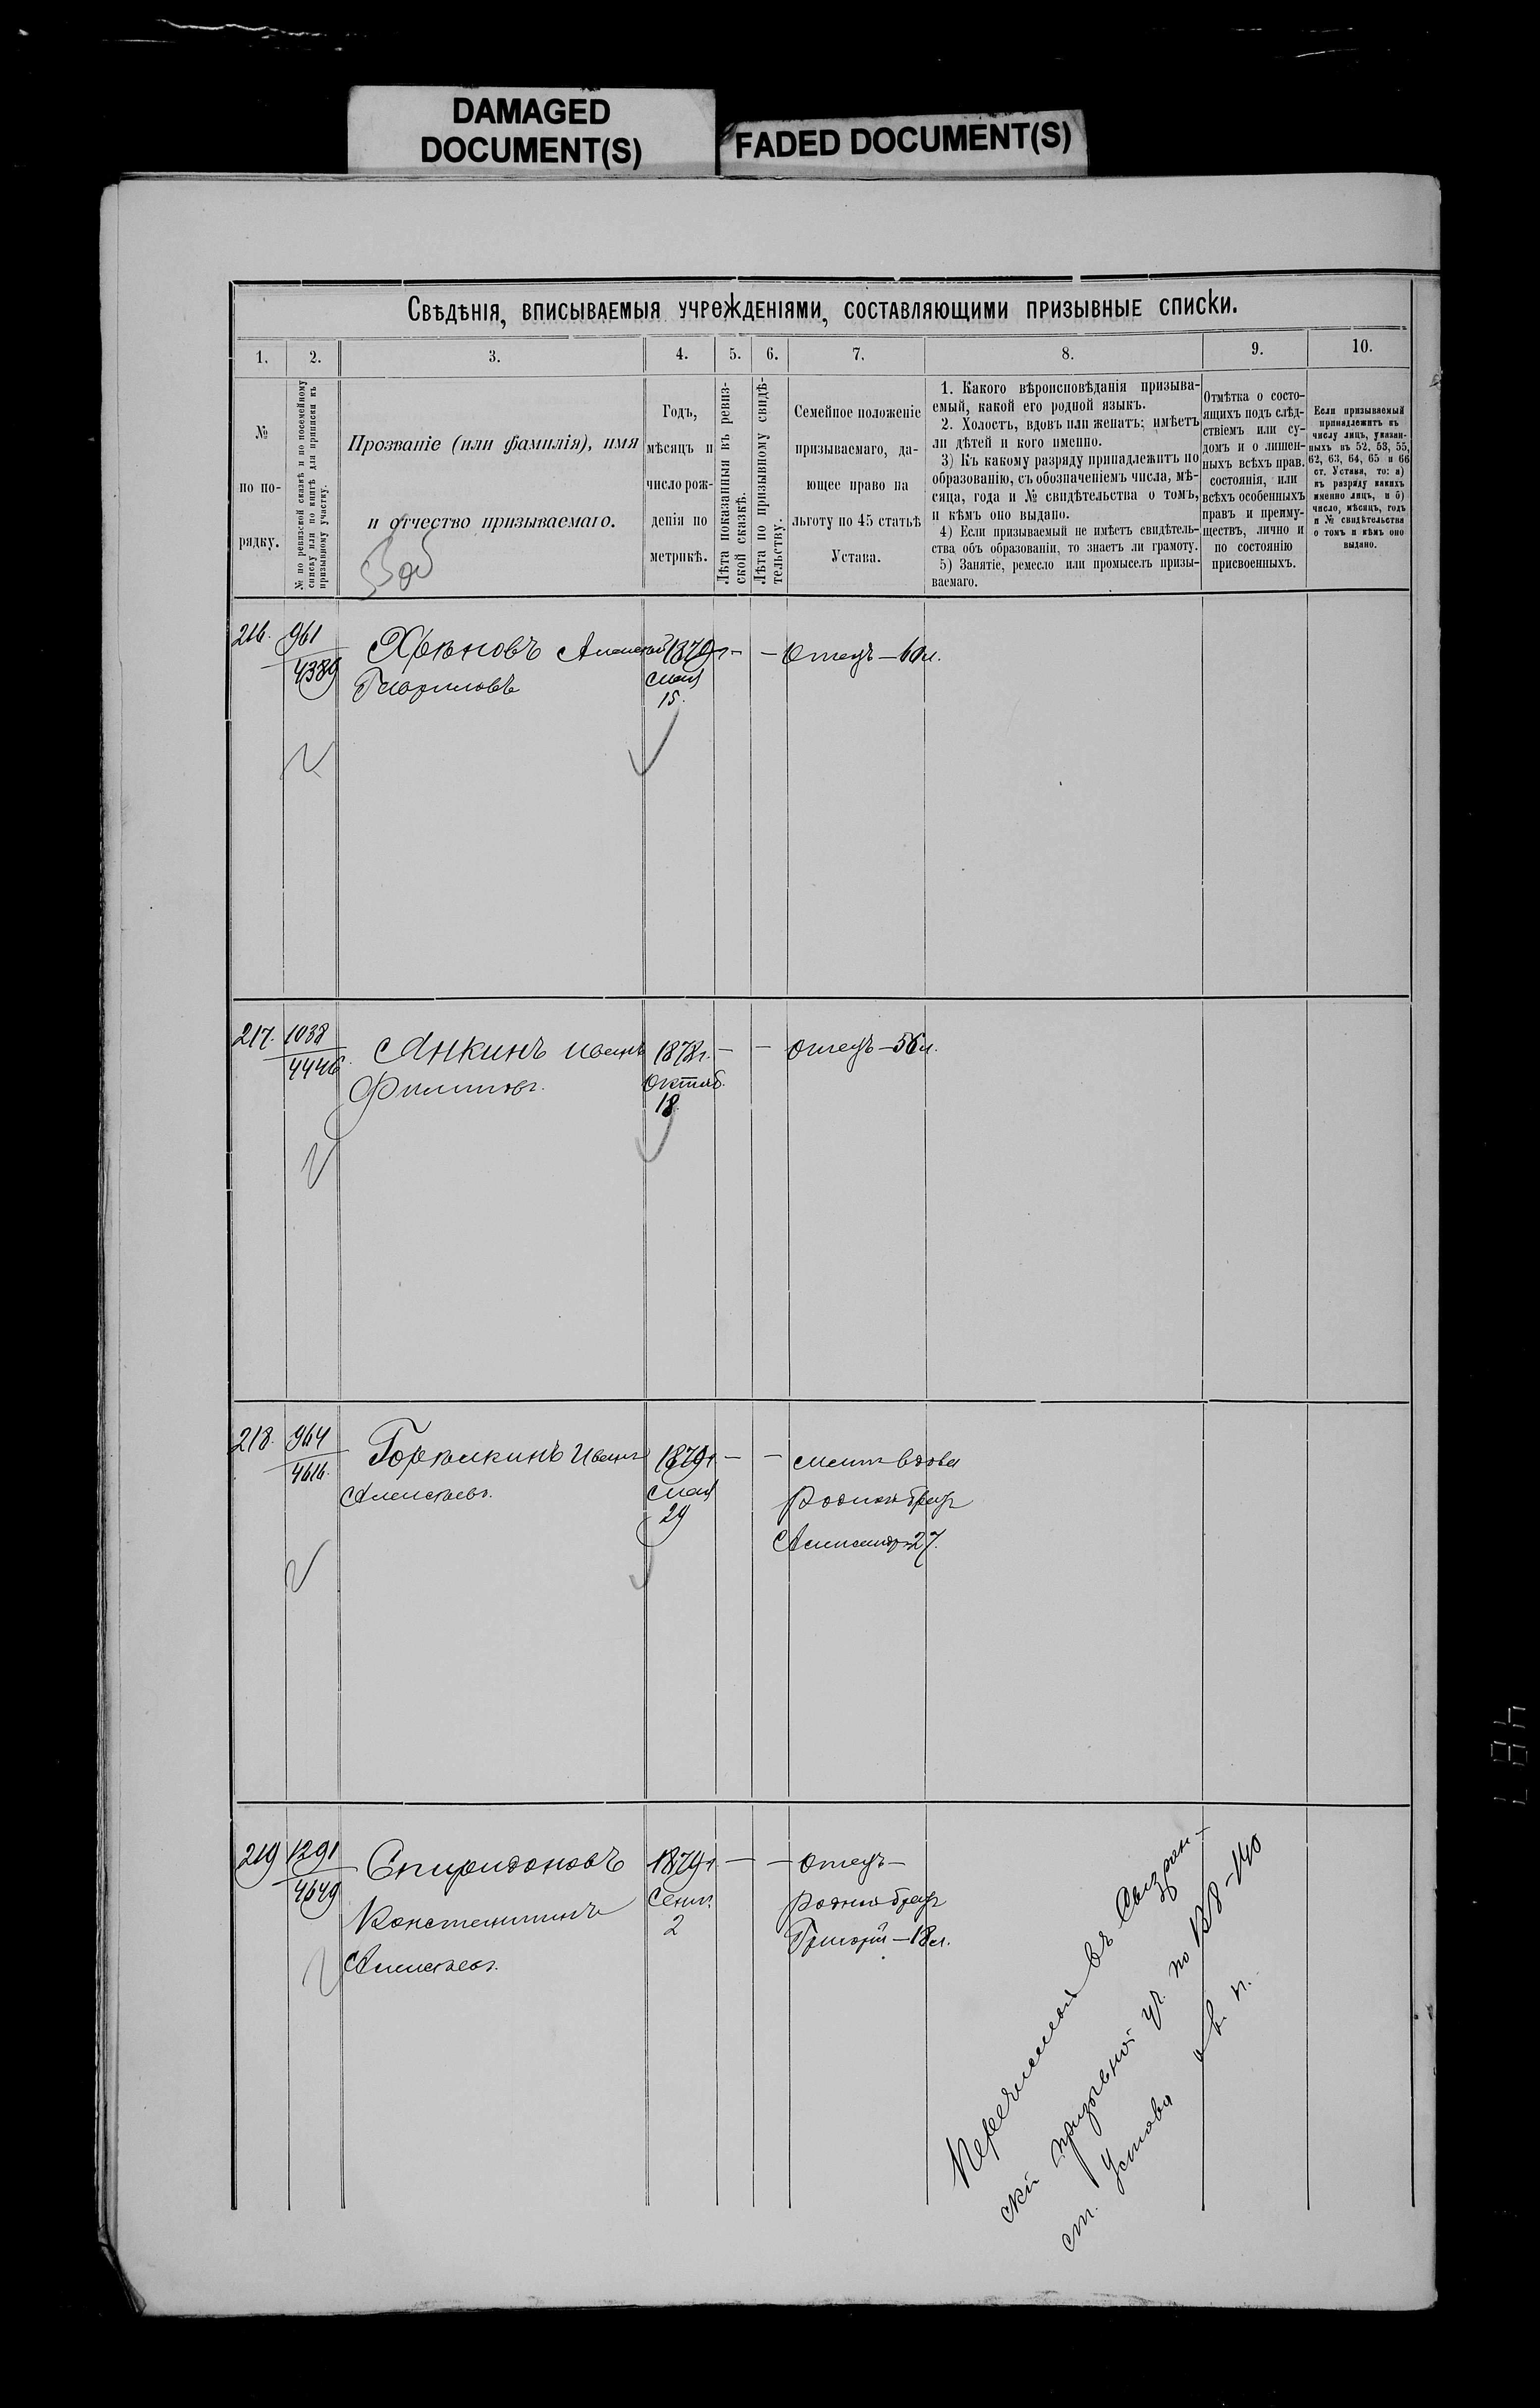 DAMAGED
DOCUMENT(S)
FADED DOCUMENT(S)
Свѣдѣнія, вписываемыя учрежденіями, составляющими призывные списки.
1.
2.
3.
4.
5.
6.
7.
8.
9.
10.
№
по по-
рядку.
№ по ревизской сказкѣ и по посемейному
списку или по книгѣ для приписки къ
призывному участку.
Прозваніе (или фамилія), имя
и отчество призываемаго.
Годъ,
мѣсяцъ и
число рож-
денія по
метрикѣ.
Лѣта показанныя въ ревиз-
ской сказкѣ.
Лѣта по призывному свидѣ-
тельству.
Семейное положеніе
призываемаго, да-
ющее право на
льготу по 45 статьѣ
Устава.
1. Какого вѣроисповѣданія призыва-
емый, какой его родной языкъ.
2. Холостъ, вдовъ или женатъ; имѣетъ
ли дѣтей и кого именно.
3) Къ какому разряду принадлежитъ по
образованію, съ обозначеніемъ числа, мѣ-
сяца, года и № свидѣтельства о томъ,
и кѣмъ оно выдано.
4) Если призываемый не имѣетъ свидѣтель-
ства объ образованіи, то знаетъ ли грамоту.
5) Занятіе, ремесло или промыселъ призы-
ваемаго.
Отмѣтка о состо-
ящихъ подъ слѣд-
ствіемъ или су-
домъ и о лишен-
ныхъ всѣхъ прав.
состоянія, или
всѣхъ особенныхъ
правъ и преиму-
ществъ, лично и
по состоянію
присвоенныхъ.
Если призываемый
принадлежитъ къ
числу лицъ, указан-
ныхъ въ 52, 53, 55,
62, 63, 64, 65 и 66
ст. Устава, то: а)
къ разряду какихъ
именно лицъ, и б)
число, мѣсяцъ, годъ
и № свидѣтельства
о томъ и кѣмъ оно
выдано.
216. 961 Хрѣновъ Алексѣй 1879г. — — Отецъ —
4389 Гавриловъ мая
15.
217. 1038 Анкинъ Иванъ 1878г. — — Отецъ — 56л.
4446. Филиповъ. Октяб.
18.
218. 964 Иванъ 1879г. — — мать вдова
4616. Алексѣевъ. мая родной братъ
29 27.
219 1291 Спиридоновъ 1879г. — — Отецъ —
4649 Константинъ Сент. родной братъ
2 Григорій — 18л.
Алексѣевъ.
Перечисленъ въ Сызран-
скій призывной уч. по 138-140
ст. Устава о в. п.
487